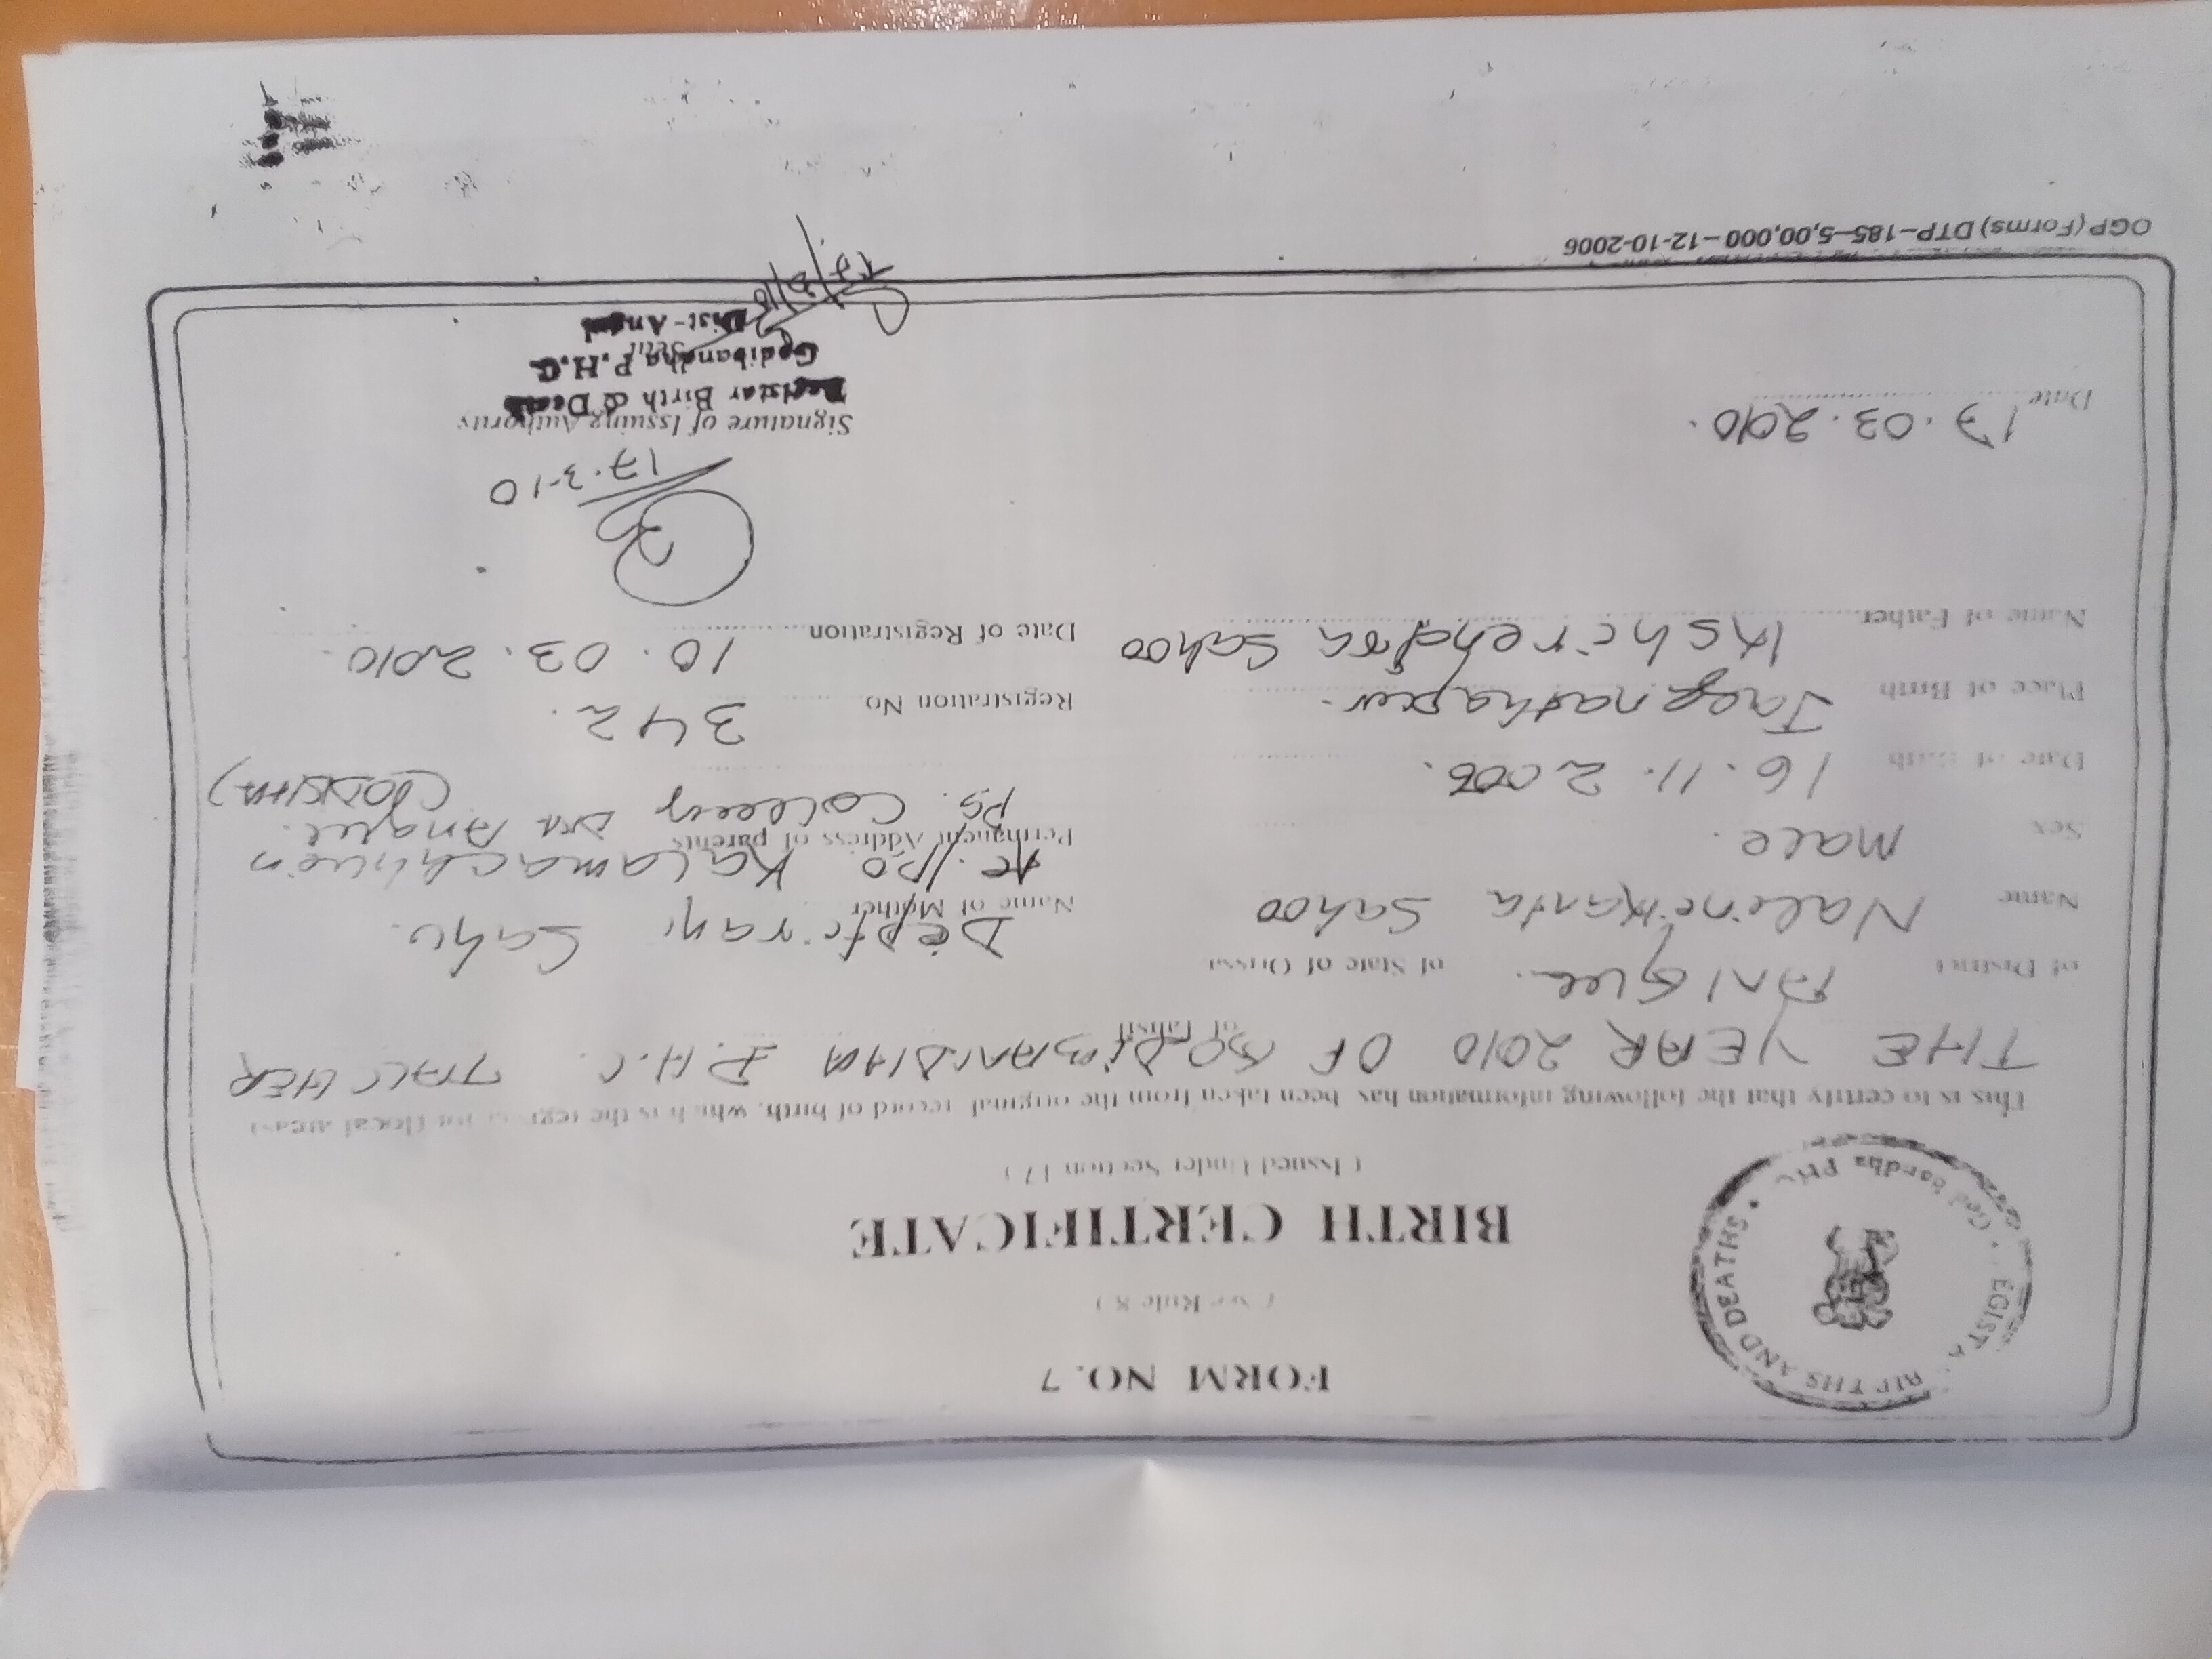 FORM NO. 7
(See Rule 8)
BIRTH CERTIFICATE
(Issued Under Section 17)
BIRTHS AND DEATHS
PHC
This is to certify that the following information has been taken from the original record of birth, which is the register for (local area)
THE YEAR 2010 OF GODIBANDHA P.H.C. TALCHER
of Tahsil
of District ANGUL. of State of Orissa
Name Nalinikanta Sahoo
Name of Mother Deptirani Sahu.
Sex Male.
Permanent Address of parents
At./PO. Kalamachhuin
PS. Colliery Dist Angul. (ODISHA)
Date of Birth 16.11.2006.
Place of Birth Jagannathapur.
Registration No 342.
Name of Father Kshirendra Sahoo
Date of Registration 10.03.2010.
17.3.10
Date 17.03.2010.
Signature of Issuing Authority
Registrar Birth & Death
Godibandha P.H.C.
Seal
Dist-Angul
OGP (Forms) DTP-185-5,00,000-12-10-2006